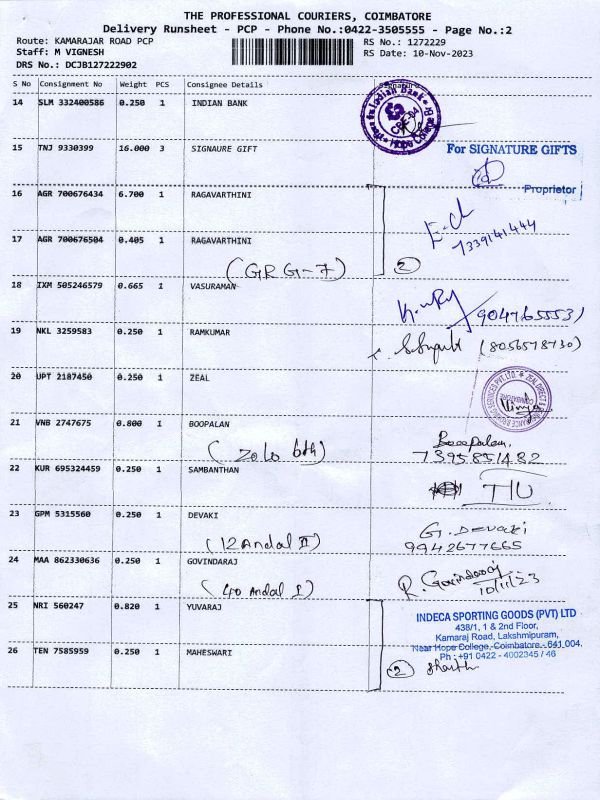 THE PROFESSIONAL COURIERS, COIMBATORE
Delivery Runsheet - PCP - Phone No.:0422-3505555 - Page No.:2
Route: KAMARAJAR ROAD PCP
RS No.: 1272229
Staff: M VIGNESH
RS Date: 10-Nov-2023
DRS No.: DCJB127222902
S No Consignment No Weight PCS Consignee Details Signature
14 SLM 332400586 0.250 1 INDIAN BANK
Indian Bank
Hope College
15 TNJ 9330399 16.000 3 SIGNAURE GIFT
For SIGNATURE GIFTS
Proprietor
16 AGR 700676434 6.700 1 RAGAVARTHINI
7339141444
17 AGR 700676504 0.405 1 RAGAVARTHINI
(GRG-7) 2
18 IXM 505246579 0.665 1 VASURAMAN
9047655531
19 NKL 3259583 0.250 1 RAMKUMAR
(8056578730)
20 UPT 2187450 0.250 1 ZEAL
COIMBATORE
21 VNB 2747675 0.800 1 BOOPALAN
Boopalan,
(Zolo 6th) 7395851482
22 KUR 695324459 0.250 1 SAMBANTHAN
23 GPM 5315560 0.250 1 DEVAKI
G. Devaki
(12 Andal II) 9942677665
24 MAA 862330636 0.250 1 GOVINDARAJ
R. Govindaraj
(40 Andal I) 10/11/23
25 NRI 560247 0.820 1 YUVARAJ
INDECA SPORTING GOODS (PVT) LTD
438/1, 1 & 2nd Floor,
Kamaraj Road, Lakshmipuram,
Near Hope College, Coimbatore - 641 004.
Ph : +91 0422 - 4002345 / 46
26 TEN 7585959 0.250 1 MAHESWARI
2